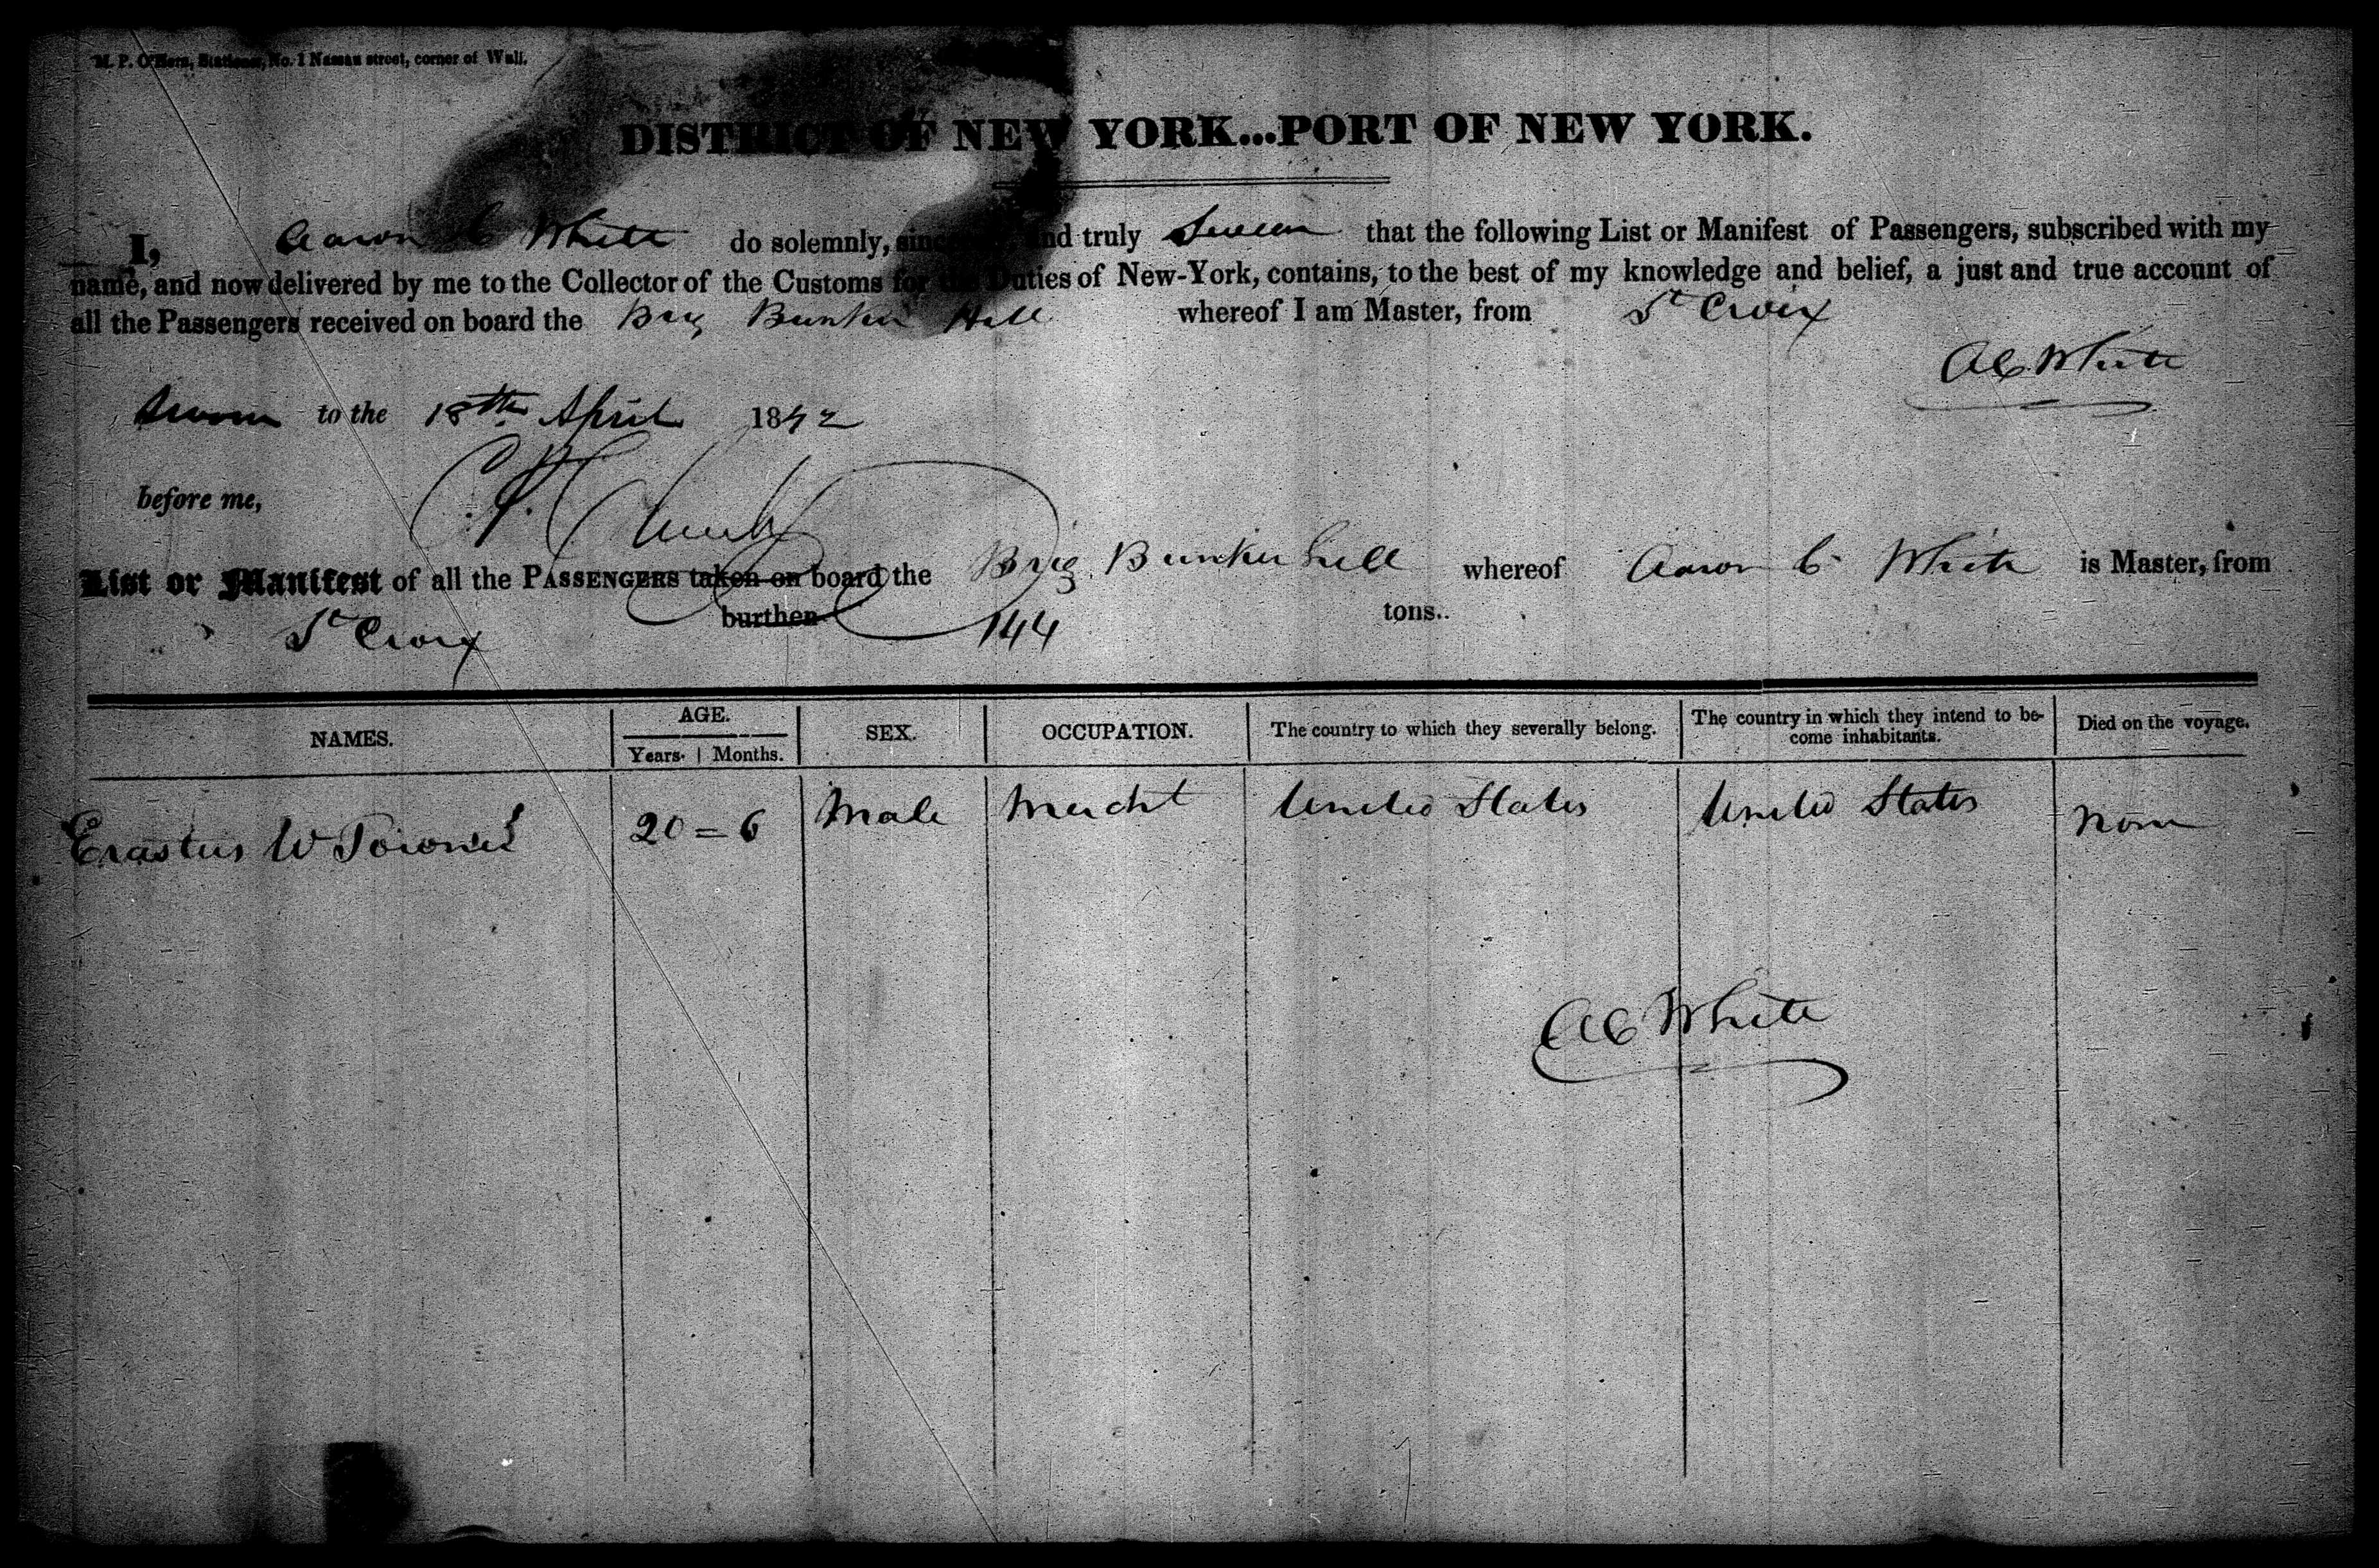 M. P. O'Hern, Stationer, No. 1 Nassau street, corner of Wall.
DISTRICT OF NEW YORK...PORT OF NEW YORK.
I, Aaron C White do solemnly, sincerely and truly Swear that the following List or Manifest of Passengers, subscribed with my
name, and now delivered by me to the Collector of the Customs for the Duties of New-York, contains, to the best of my knowledge and belief, a just and true account of
all the Passengers received on board the Brig Bunker Hill whereof I am Master, from St Croix
A C White
Sworn to the 18th April 1842
before me,
List or Manifest of all the PASSENGERS taken on board the Brig Bunker hill whereof Aaron C White is Master, from
St Croix burthen 144 tons.
NAMES. AGE. SEX. OCCUPATION. The country to which they severally belong. The country in which they intend to be- Died on the voyage.
Years. Months. come inhabitants.
Erastus W 20 = 6 Male Mercht United States United States None
A C White